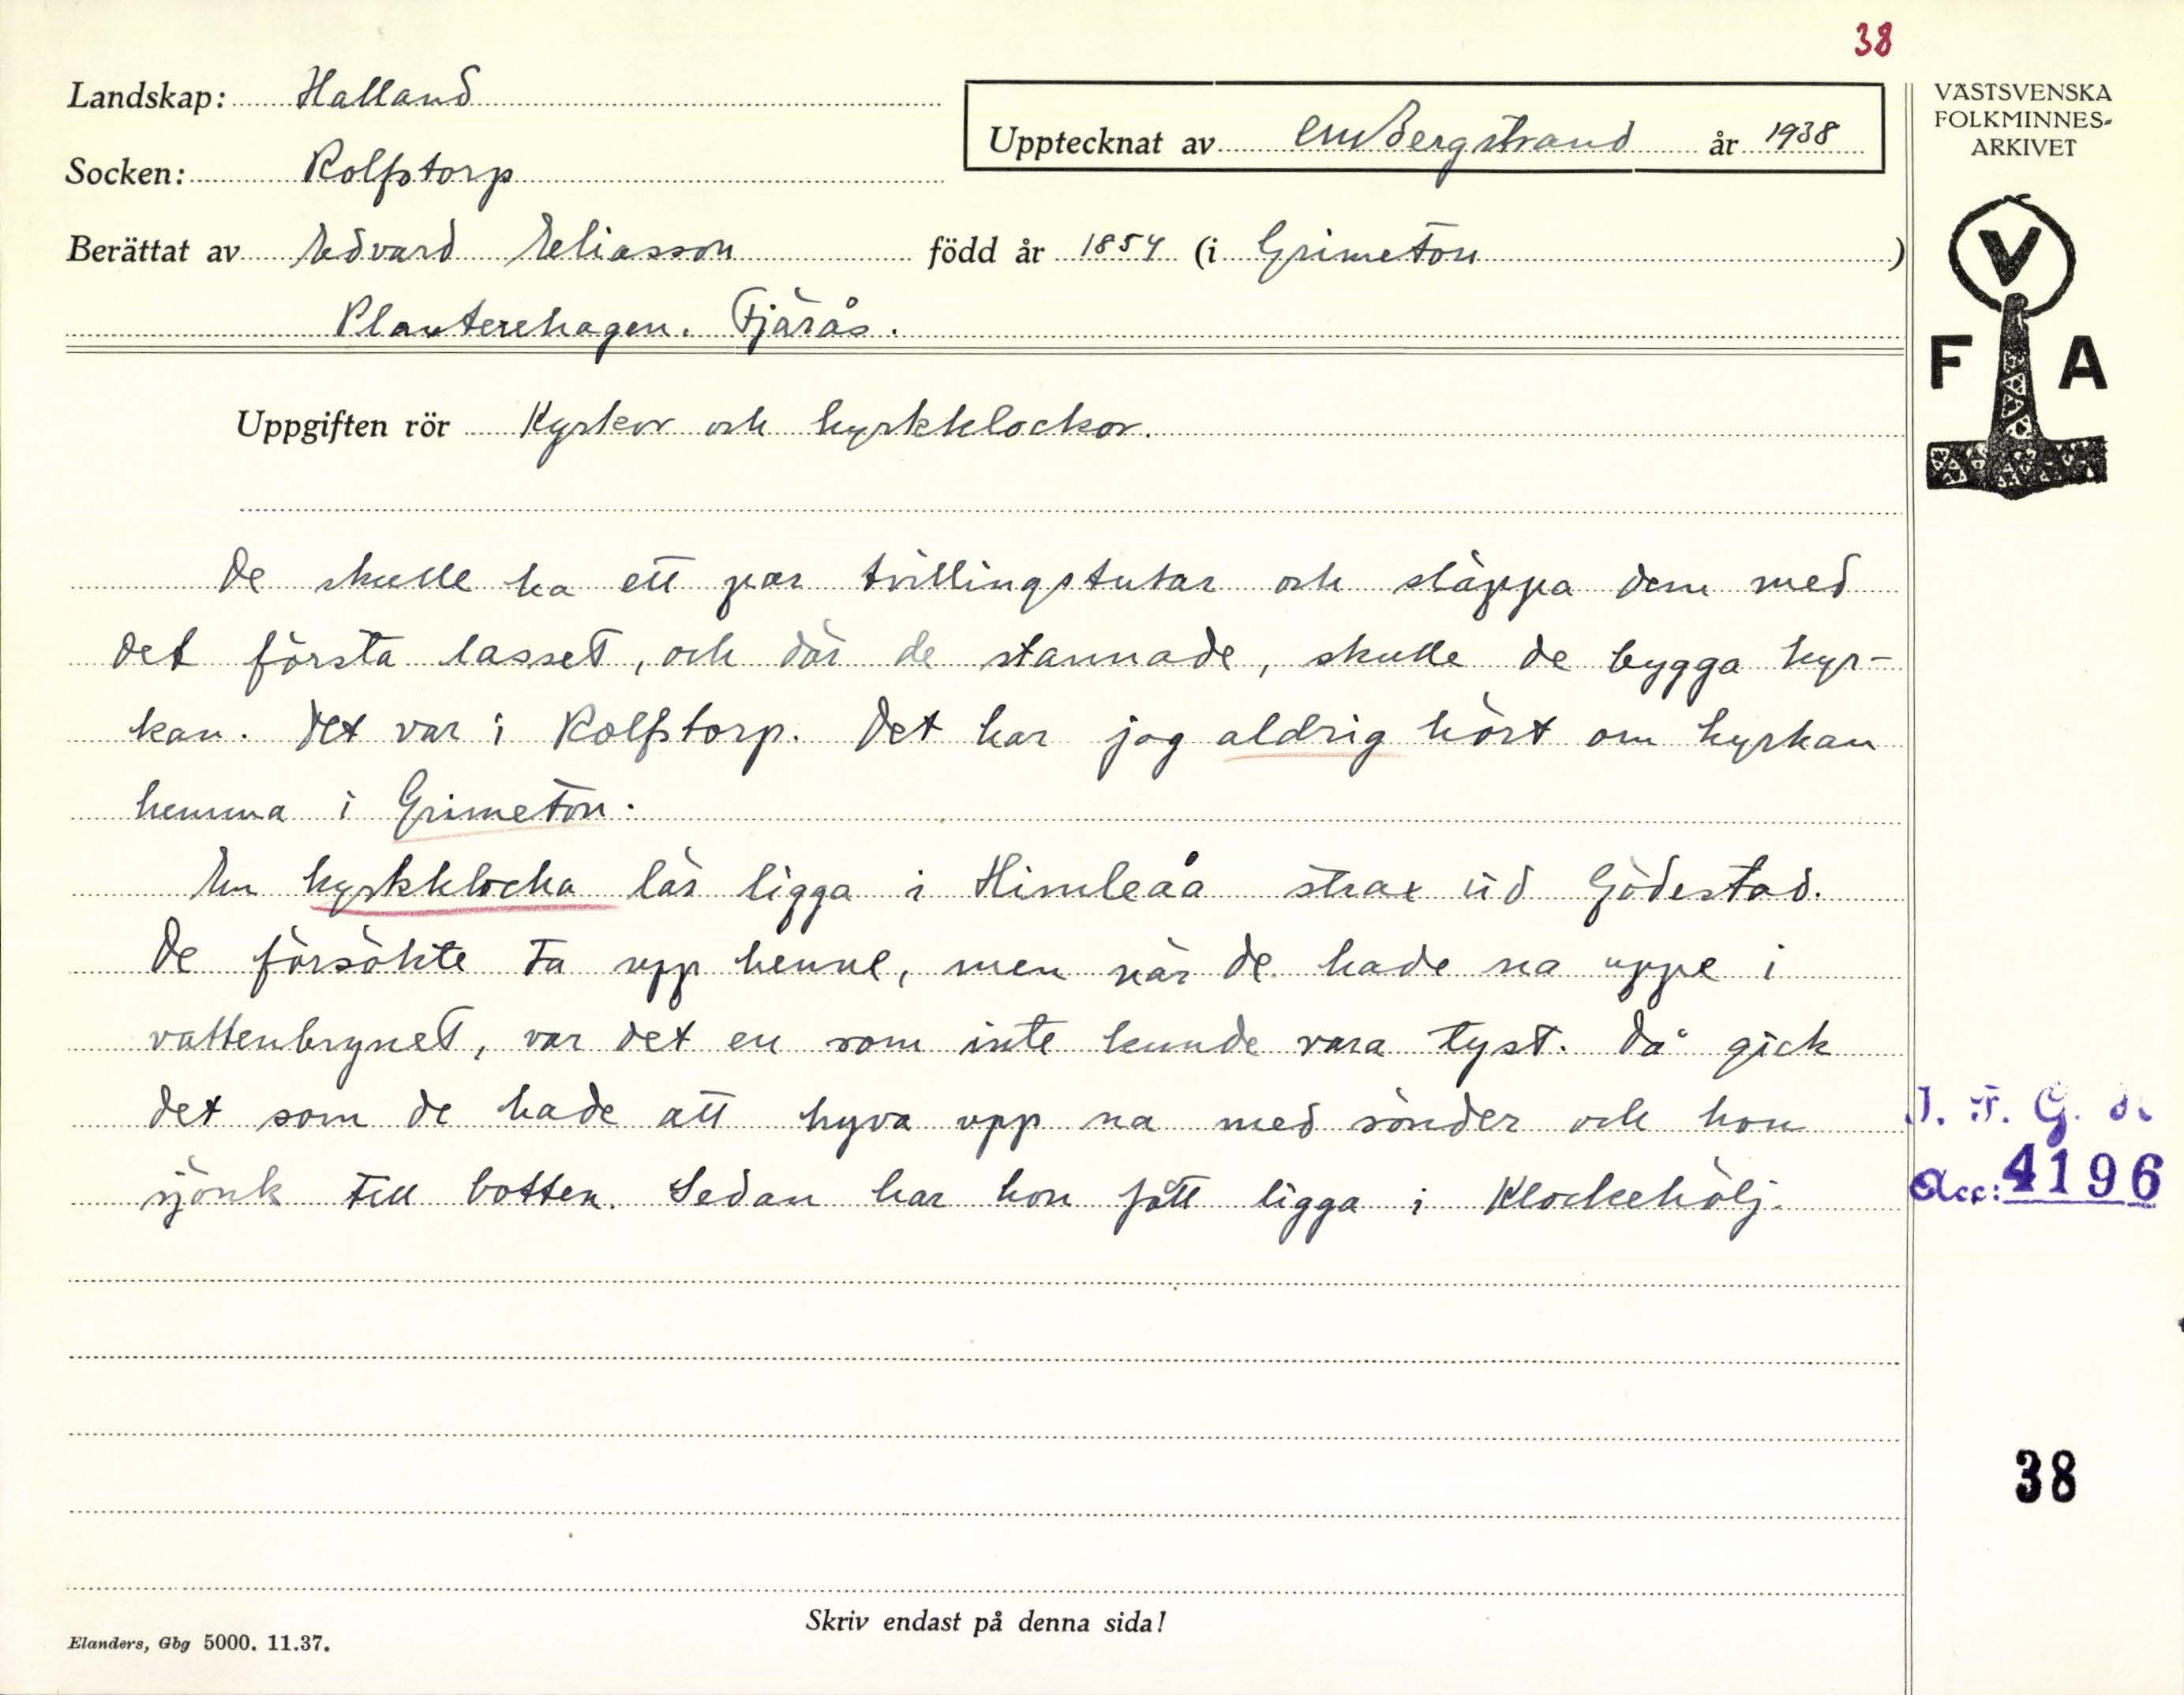 38
Landskap: Halland
Upptecknat av CM Bergstrand år 1938
Socken: Rolfstorp
Berättat av Edvard Eliasson född år 1854 (i Grimeton)
Planterehagen. Fjärås.
VÄSTSVENSKA
FOLKMINNES-
ARKIVET
V
F A
Uppgiften rör Kyrkor och kyrkklockor.
De skulle ha ett par tvillingstutar och släppa dem med
det första lasset, och där de stannade, skulle de bygga kyr-
kan. Det var i Rolfstorp. Det har jag aldrig hört om kyrkan
hemma i Grimeton.
En kyrkklocka lär ligga i Himleåa strax vid Gödestad.
De försökte ta upp henne, men när de hade na uppe i
vattenbrynet, var det en som inte kunde vara tyst. Då gick
det som de hade att hyva upp na med sönder och hon
sjönk till botten. Sedan har hon fått ligga i Klockehölj.
I. F. G. s
Acc: 4196
38
Skriv endast på denna sida!
Elanders, Gbg 5000. 11.37.